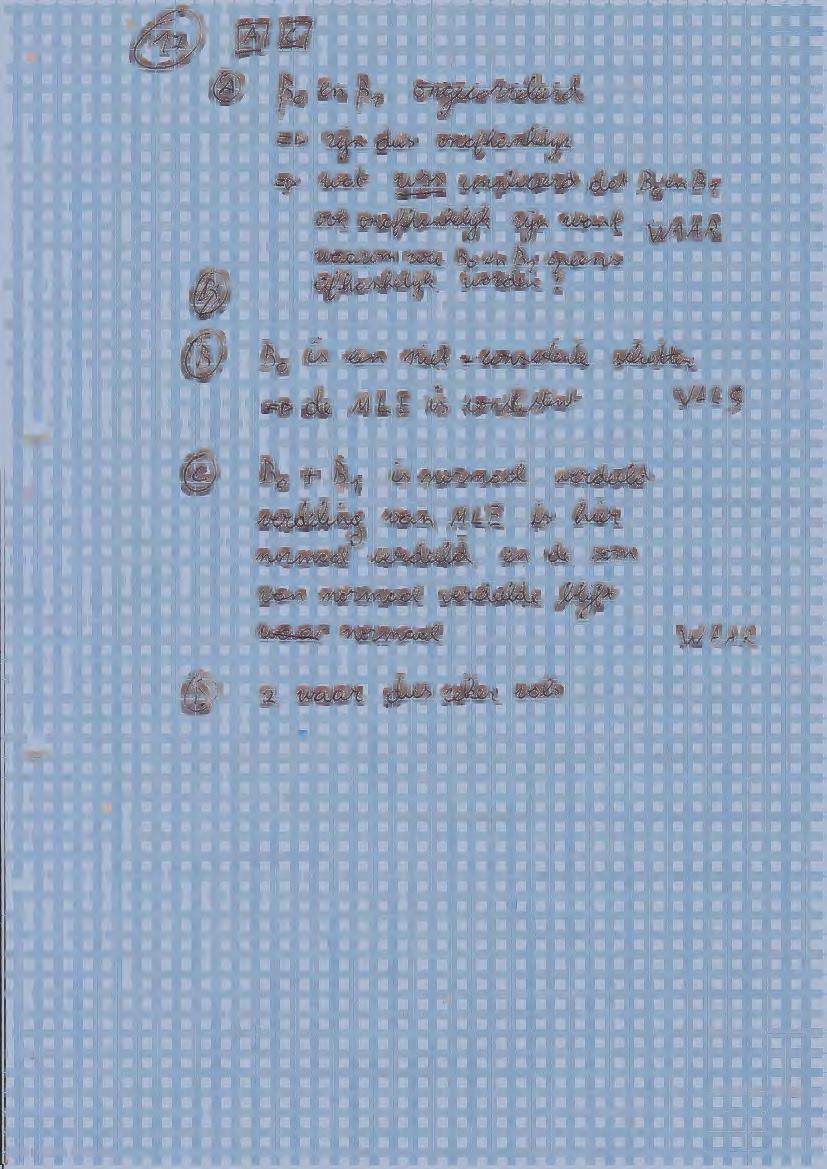 17 A C
A β₀ en β₁ ongecorreleerd
⇒ zijn dus onafhankelijk
⇒ wat impliceert dat B₀ en B₁
ook onafhankelijk zijn want WAAR
waarom zou B₀ en B₁ opeens
afhankelijk worden?
B
B B₀ is een niet-consistente schatter
⇒ de MLE is consistent VALS
C B₀ + B₁ is normaal verdeeld
verdeling van MLE is hier
normaal verdeeld en de som
van normaal verdeelde blijft
weer normaal WAAR
D 2 waar dus zeker vals